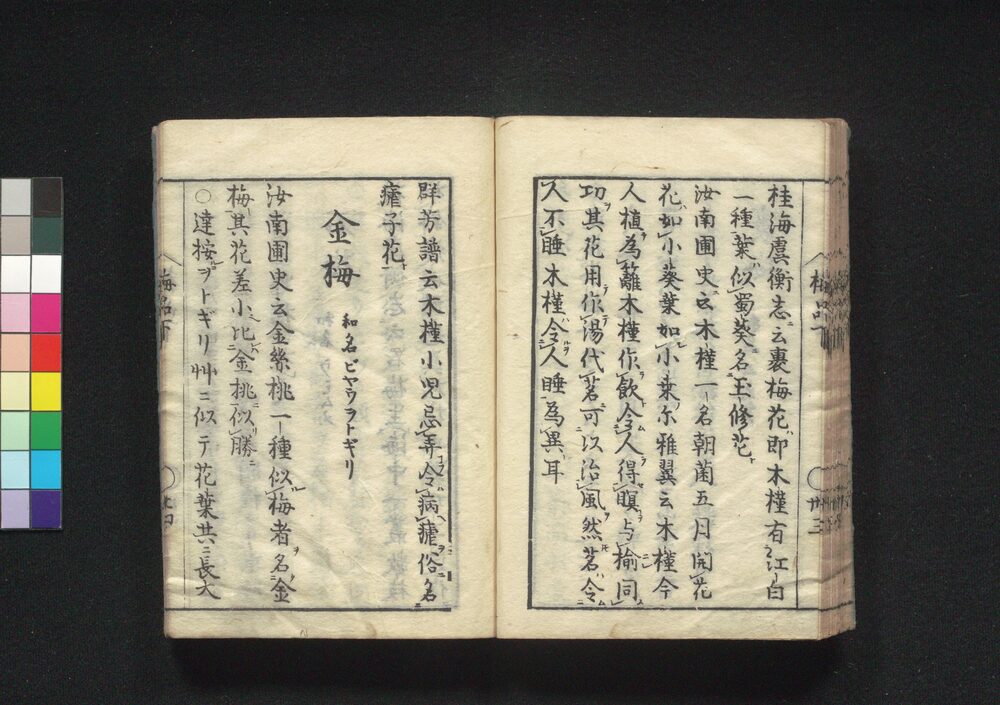 桂海虞衡志云裹梅花即木槿有江白
一種葉似蜀葵名玉修花
汝南圃史云木槿一名朝菌五月開花
花如小葵葉如小桒尓雅翼云木槿今
人植為籬木槿作飲令人得瞑与楡同
功其花用作湯代茗可以治風然茗令
人不睡木槿令人睡為異耳
梅品下
廿三
群芳譜云木槿小児忌弄令病瘧俗名
瘧子花
金梅 和名ビヤウヲトギリ
汝南圃史云金絲桃一種似梅者名金
梅其花差小比金桃似勝
○達按ヲトギリ艸ニ似テ花葉共ニ長大